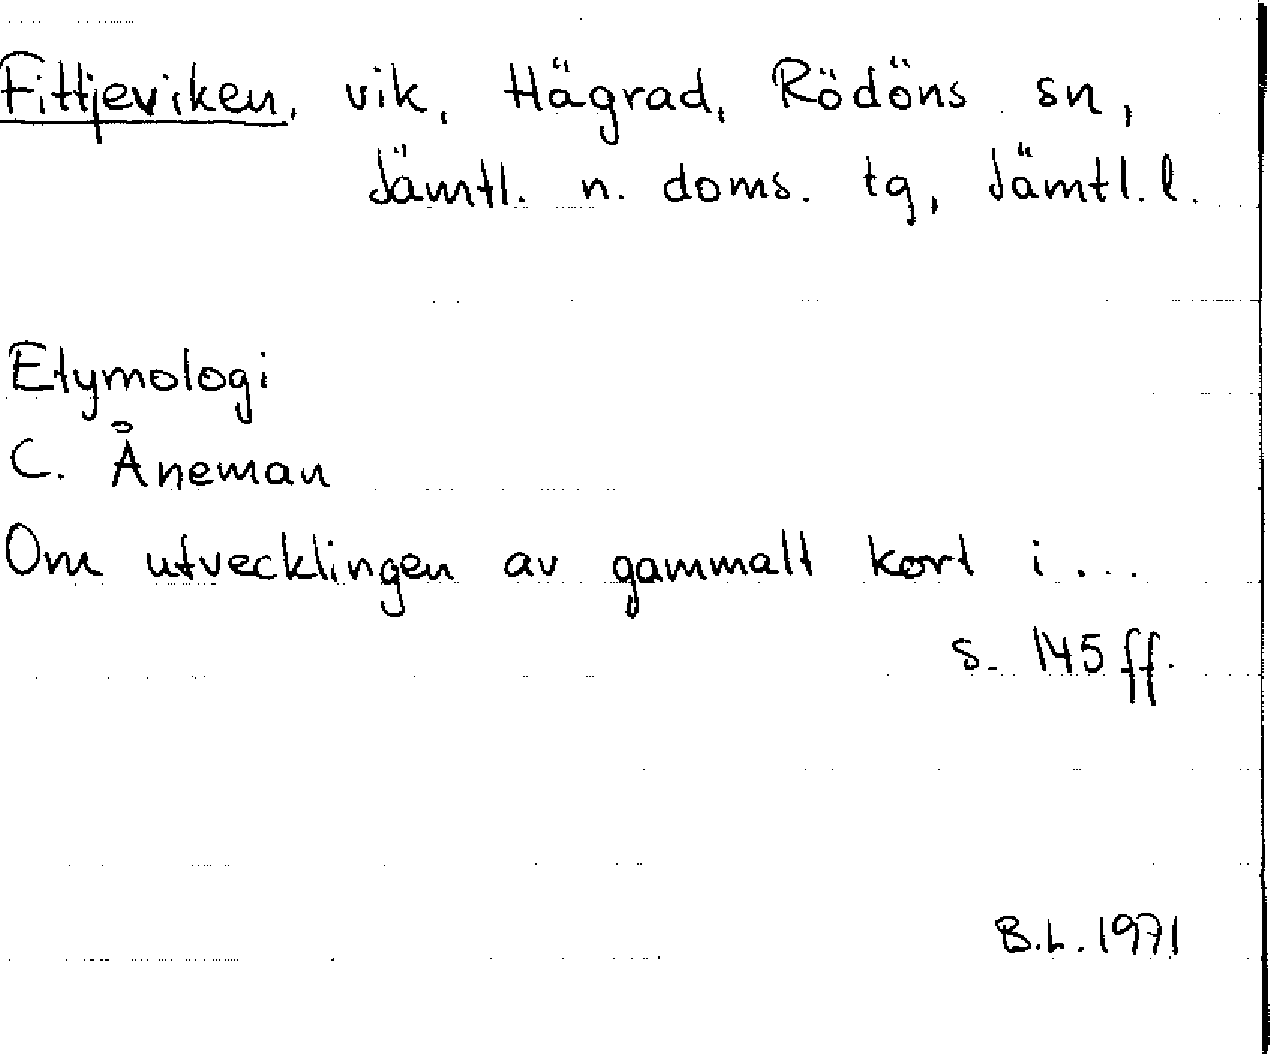 Fittjeviken, vik, Hägrad, Rödöns sn,
Jämtl. n. doms. tg, Jämtl. l.
Etymologi
C. Åneman
Om utvecklingen av gammalt kort i...
s. 145 ff.
B.L. 1971